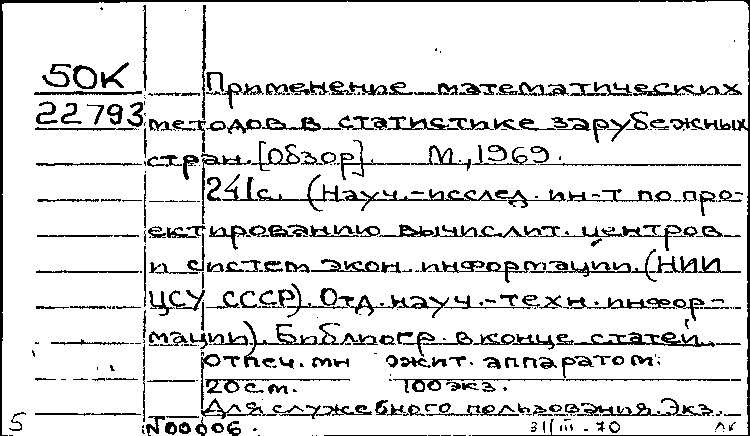 50К
22793
Применение математических
методов в статистике зарубежных
стран. [Обзор]. М., 1969.
241с. (Науч.-исслед. ин-т по про-
ектированию вычислит. центров
и систем экон. информации. (НИИ
ЦСУ СССР). Отд. науч.-техн. инфор-
мации). Библиогр. в конце статей.
Отпеч. мн ожит. аппаратом.
20см. 100экз.
Для служебного пользования. Экз.
5 N00006. 31/III-70